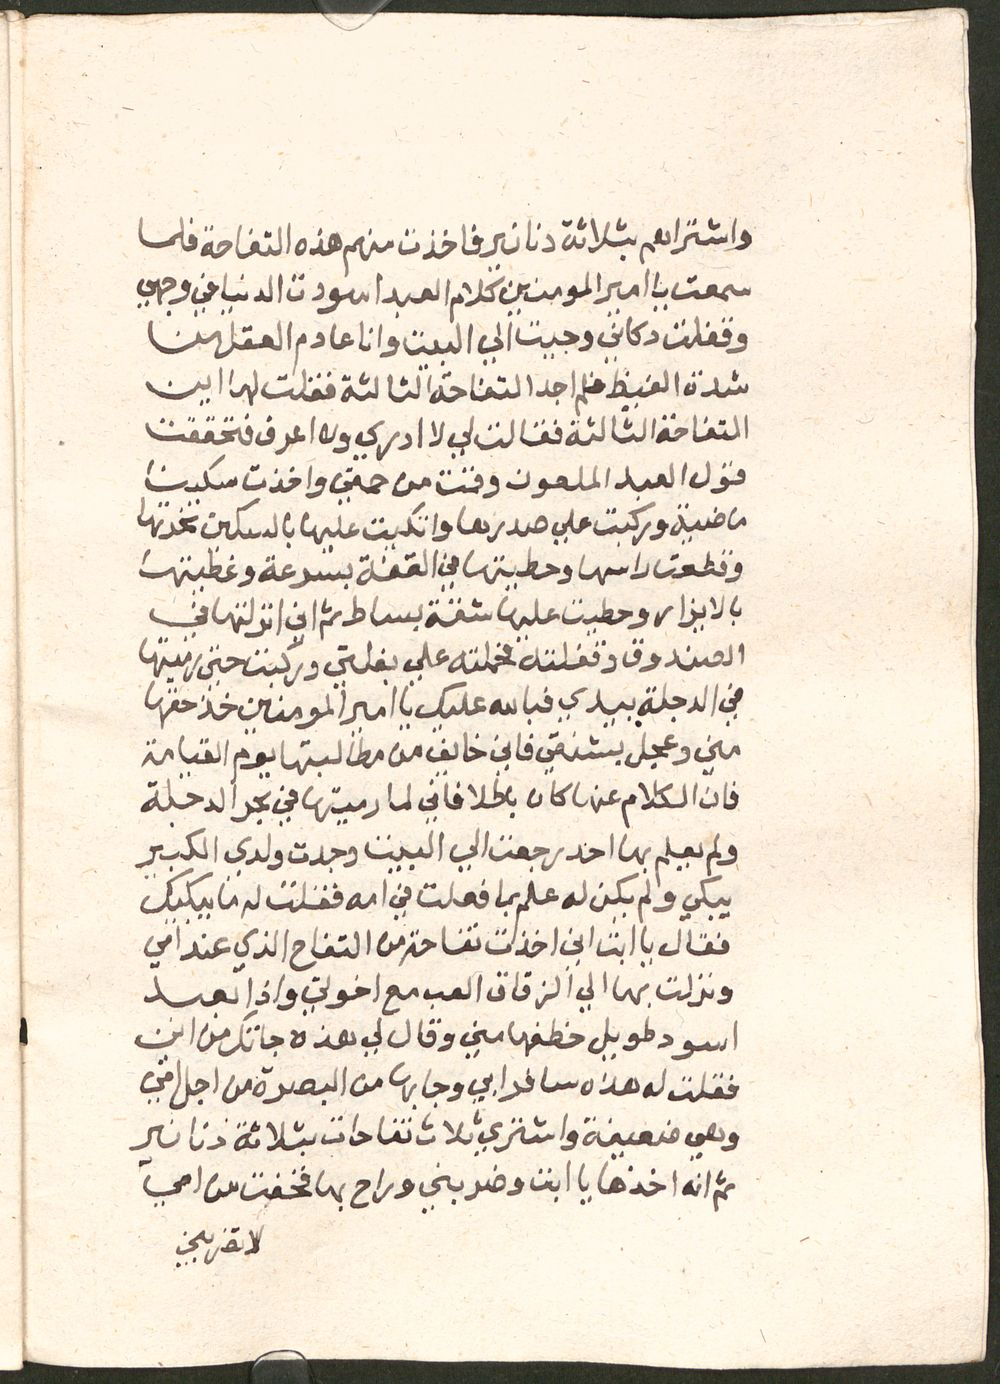 واشتراهم بثلاثة دنانير فاخذت منهم هذه التفاحة فلما
سمعت يا امير المومنين كلام العبد اسودت الدنيا في وجهي
وقفلت دكاني وجيت الي البيت وانا عادم العقل من
شدة الغيظ فلم اجد التفاحة الثالثة فقلت لها اين
التفاحة الثالثة فقالت لي لا ادري ولا اعرف فتحققت
قول العبد الملعون وقمت من حمقي واخذت سكينا
ماضية وركبت علي صدرها واتكيت عليها بالسكين نحرتها
وقطعت راسها وحطيتها في القفة بسرعة وغطيتها
بالايزار وحطيت عليها شقة بساط ثم اني انزلتها في
الصندوق وقفلته فحملته علي بغلتي وركبت حتي رميتها
في الدجلة بيدي فبالله عليك يا امير المومنين خذ حقها
مني وعجل بشنقي فاني خايف من مطالبتها يوم القيامة
فان الكلام عنها كان باطلا فاني لما رميتها في بحر الدجلة
ولم يعلم بها احد رجعت الي البيت وجدت ولدي الكبير
يبكي ولم يكن له علم بما فعلت في امه فقلت له ما يبكيك
فقال يا ابت اني اخذت تفاحة من التفاح الذي عند امي
ونزلت بها الي الزقاق العب مع اخوتي واذا بعبد
اسود طويل خطفها مني وقال لي هذه جاتك من اين
فقلت له هذه سافر ابي وجابها من البصرة من اجل امي
وهي ضعيفة واشتري ثلاث تفاحات بثلاثة دنانير
ثم انه اخذها يا ابت وضربني وراح بها فخفت من امي
لا تضربني